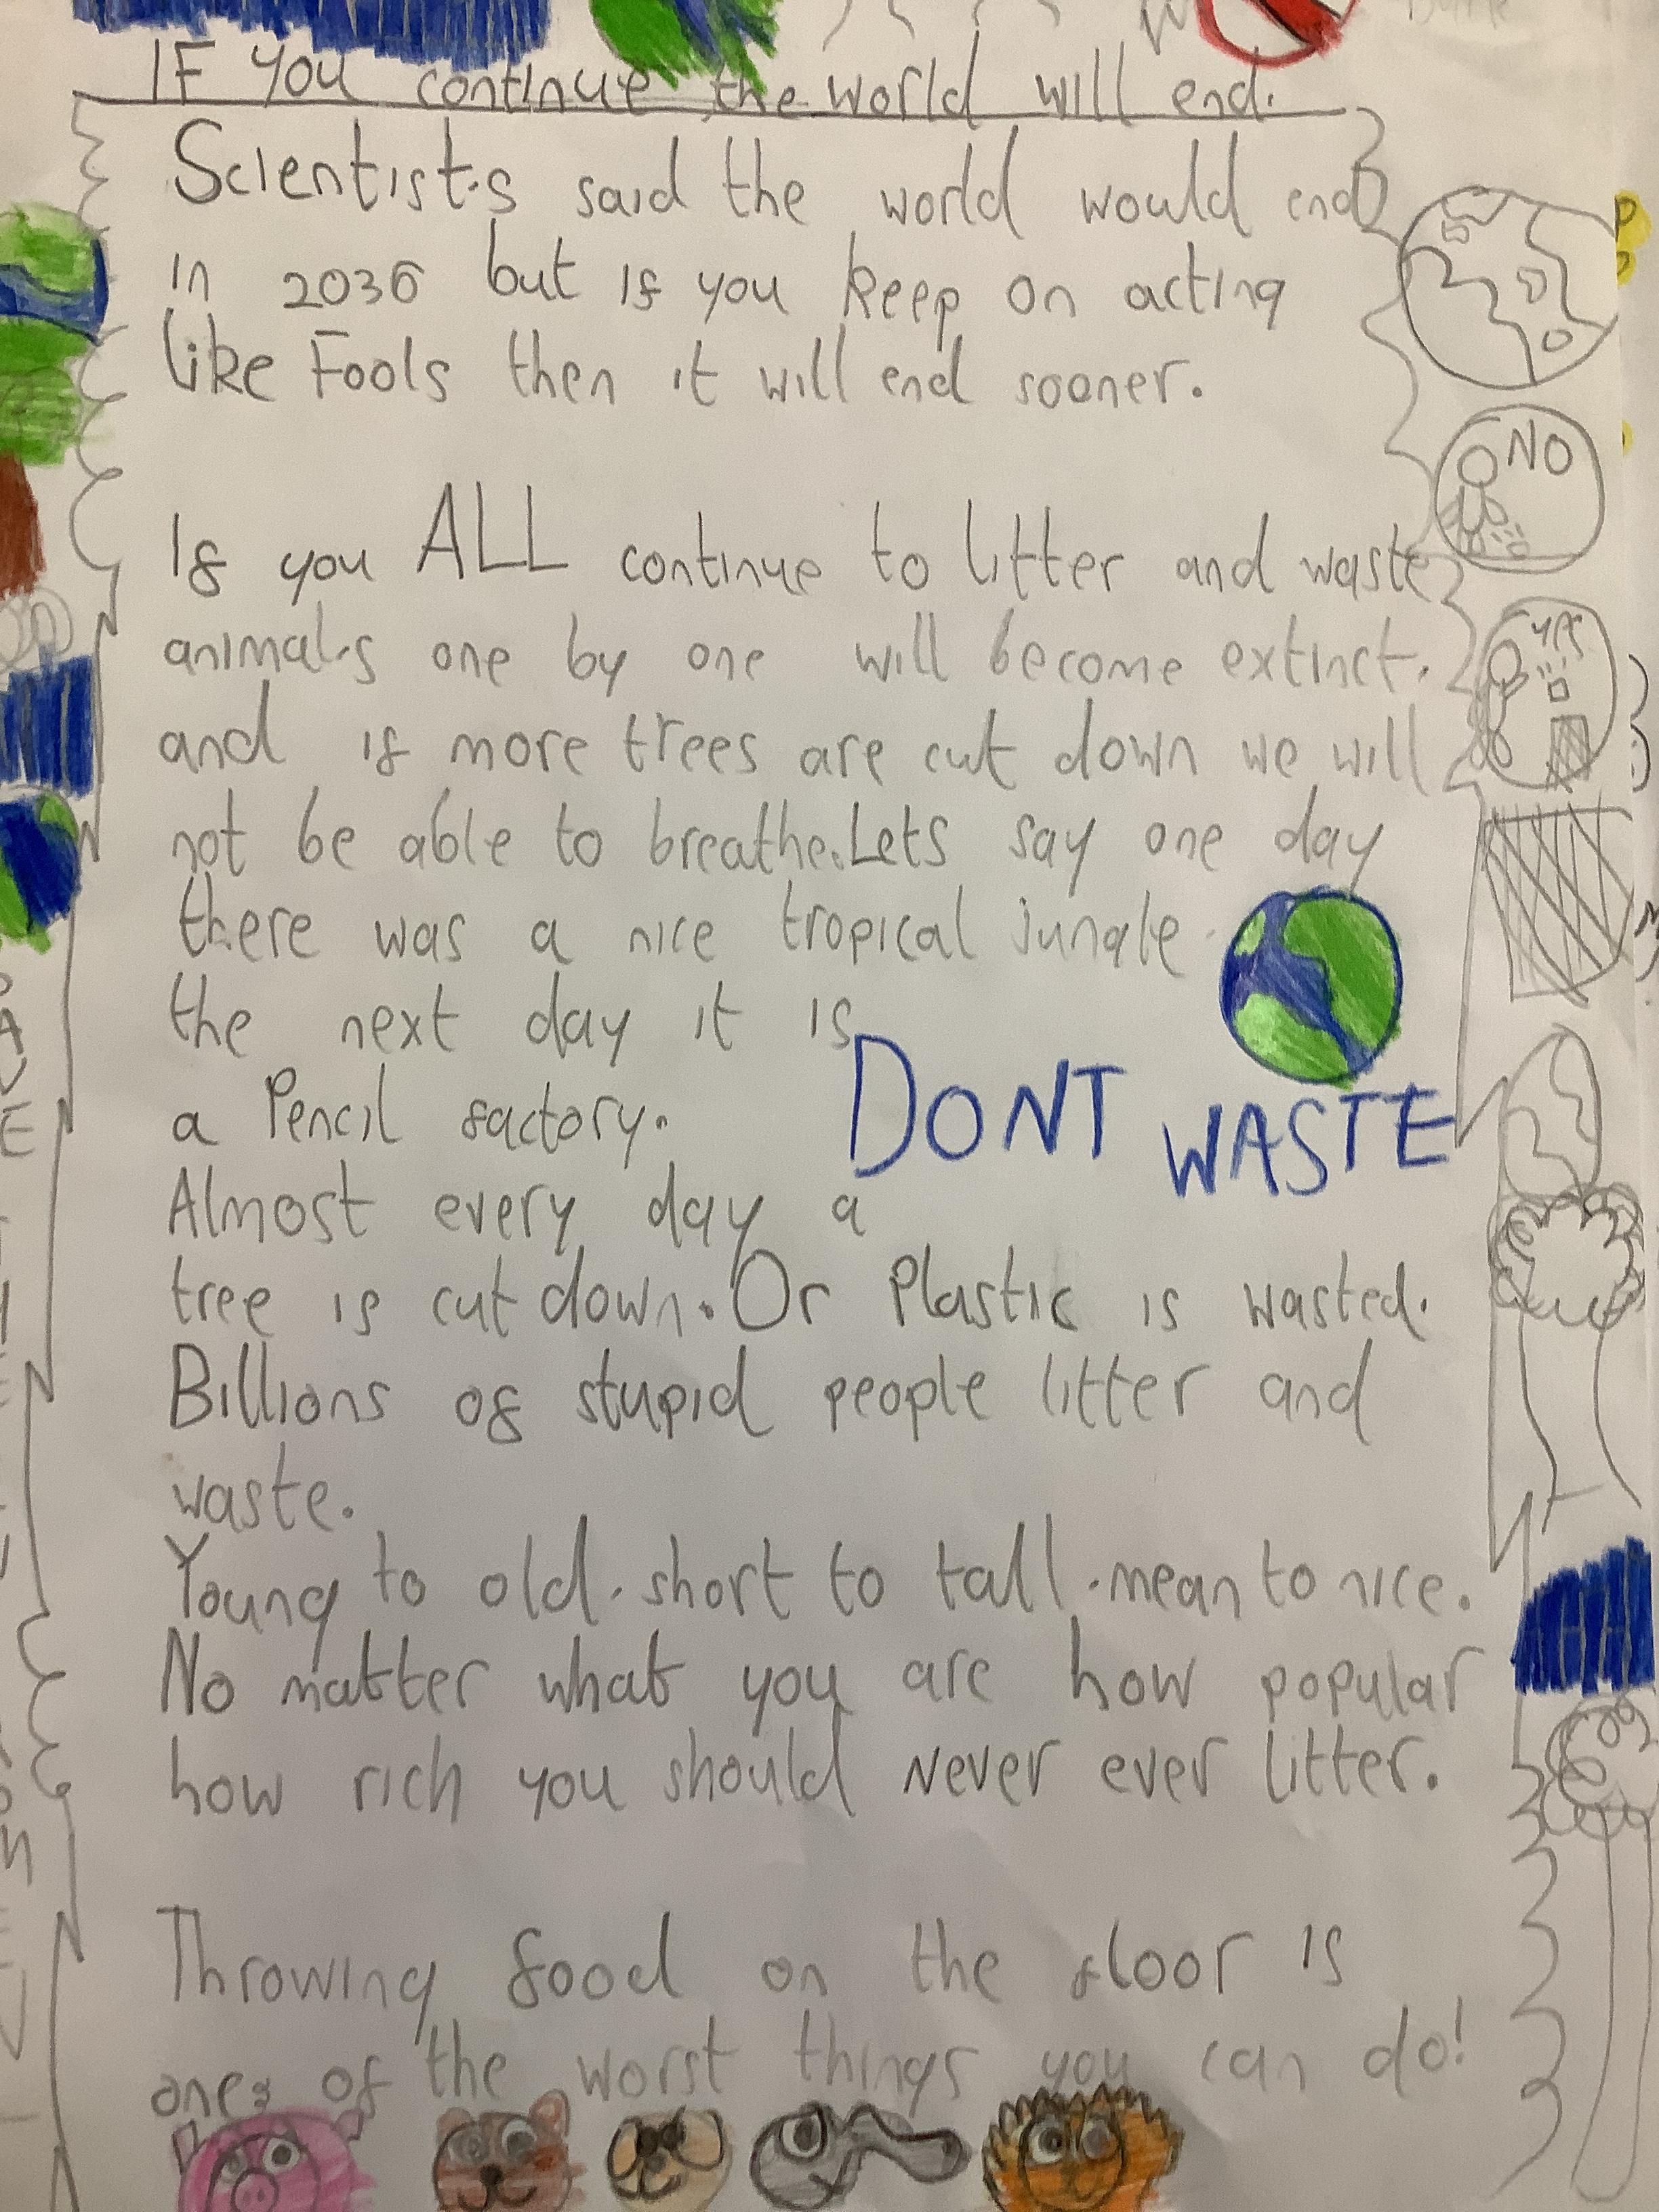 IF you continue the world will end.
Scientists said the world would end
in 2036 but if you keep on acting
like Fools then it will end sooner.
NO
If you ALL continue to litter and waste
yes
animals one by one will become extinct.
and if more trees are cut down we will
not be able to breathe. Lets say one day
there was a nice tropical jungle
the next day it is
a Pencil factory.
DONT WASTE
Almost every day a
tree is cut down. Or Plastic is wasted.
Billions of stupid people litter and
waste.
Young to old. short to tall. mean to nice.
No matter what you are how popular
how rich you should Never ever litter.
Throwing food on the floor is
one of the worst things you can do!